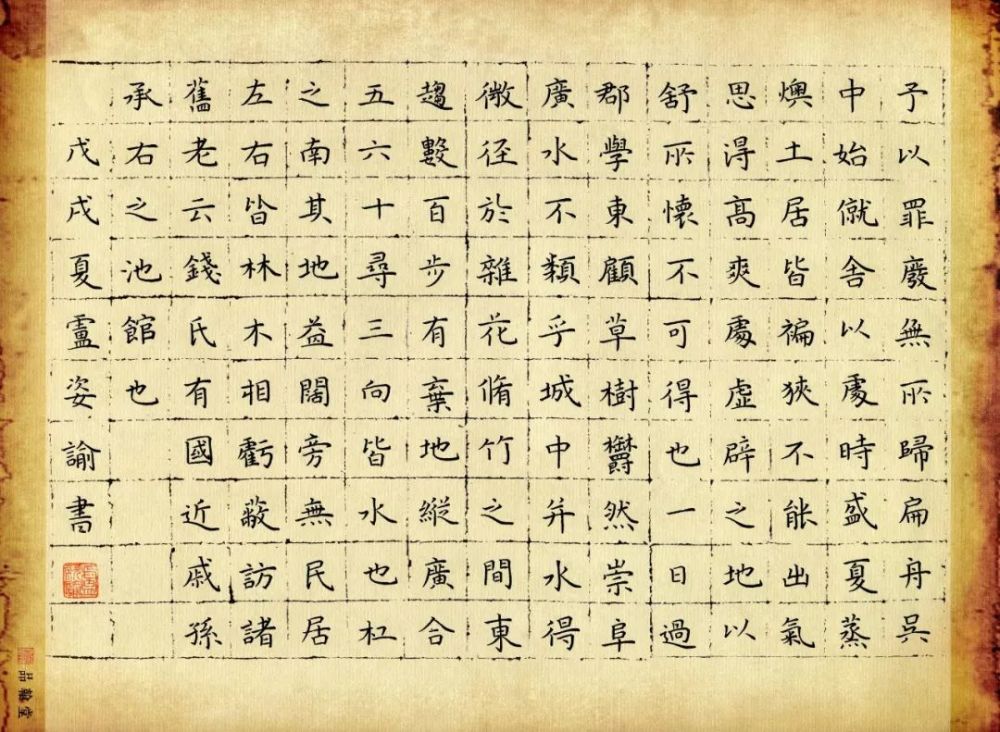 予以罪廢無所歸扁舟吳
中始僦舍以處時盛夏蒸
燠土居皆褊狹不能出氣
思得高爽處虛辟之地以
舒所懷不可得也一日過
郡學東顧草樹欝然崇阜
廣水不類乎城中并水得
微徑於雜花脩竹之間東
趨數百步有棄地縱廣合
五六十尋三向皆水也杠
之南其地益闊旁無民居
左右皆林木相虧蔽訪諸
舊老云錢氏有國近戚孫
承右之池館也
戊戌夏盧姿諭書
品翰堂